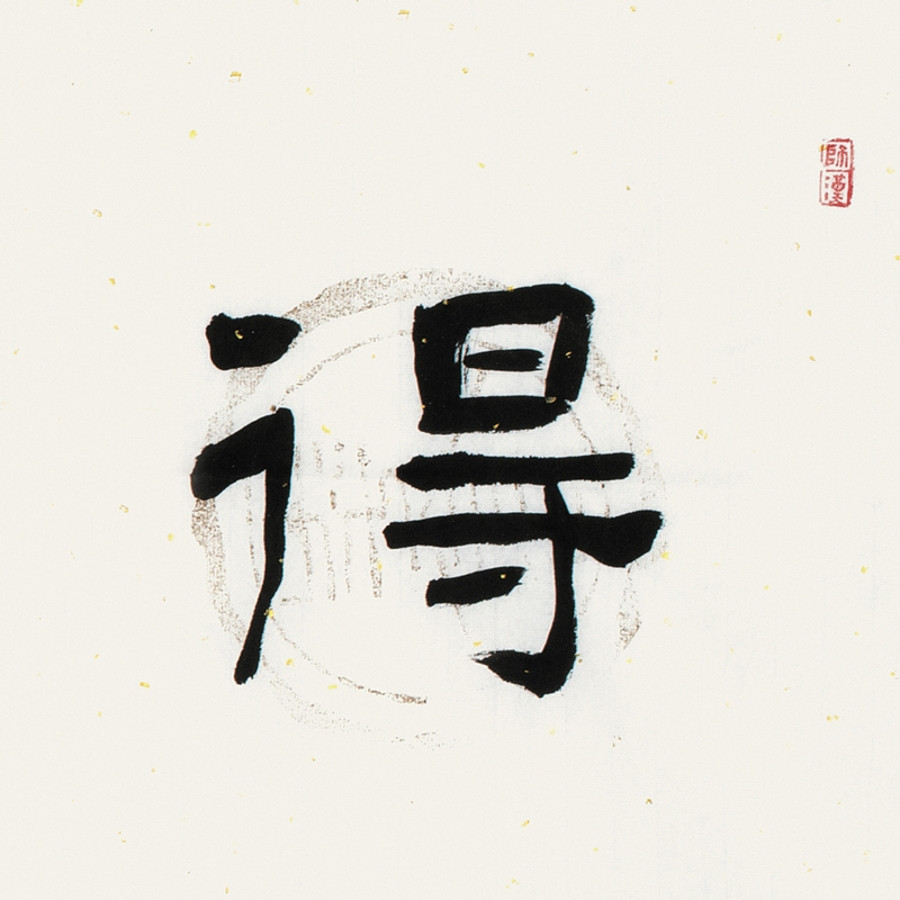 得
師漢